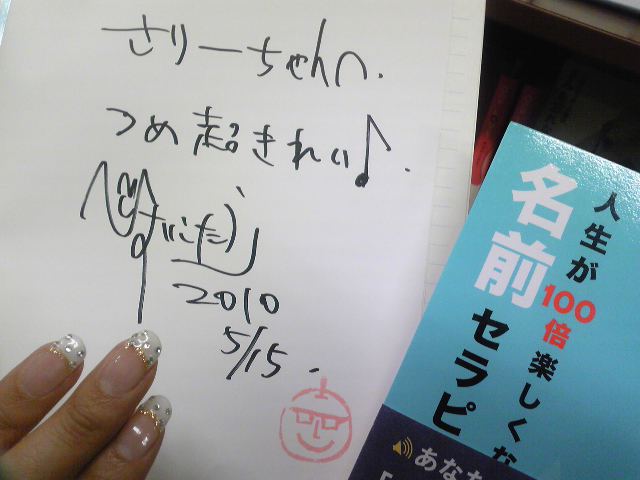 さりーちゃんへ.
つめ超きれい♪.
2010
5/15.
人生が
100倍楽しくな
名前
セラピ
あなた